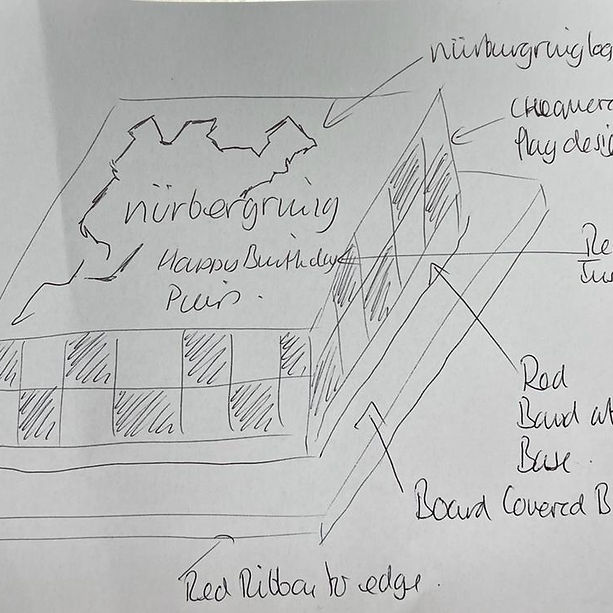 nürburgring lo
Chequere
flag desig
nürbergring
Happy Birthday
Re
Red
Band at
Base.
Board Covered B
Red Ribbon to edge.